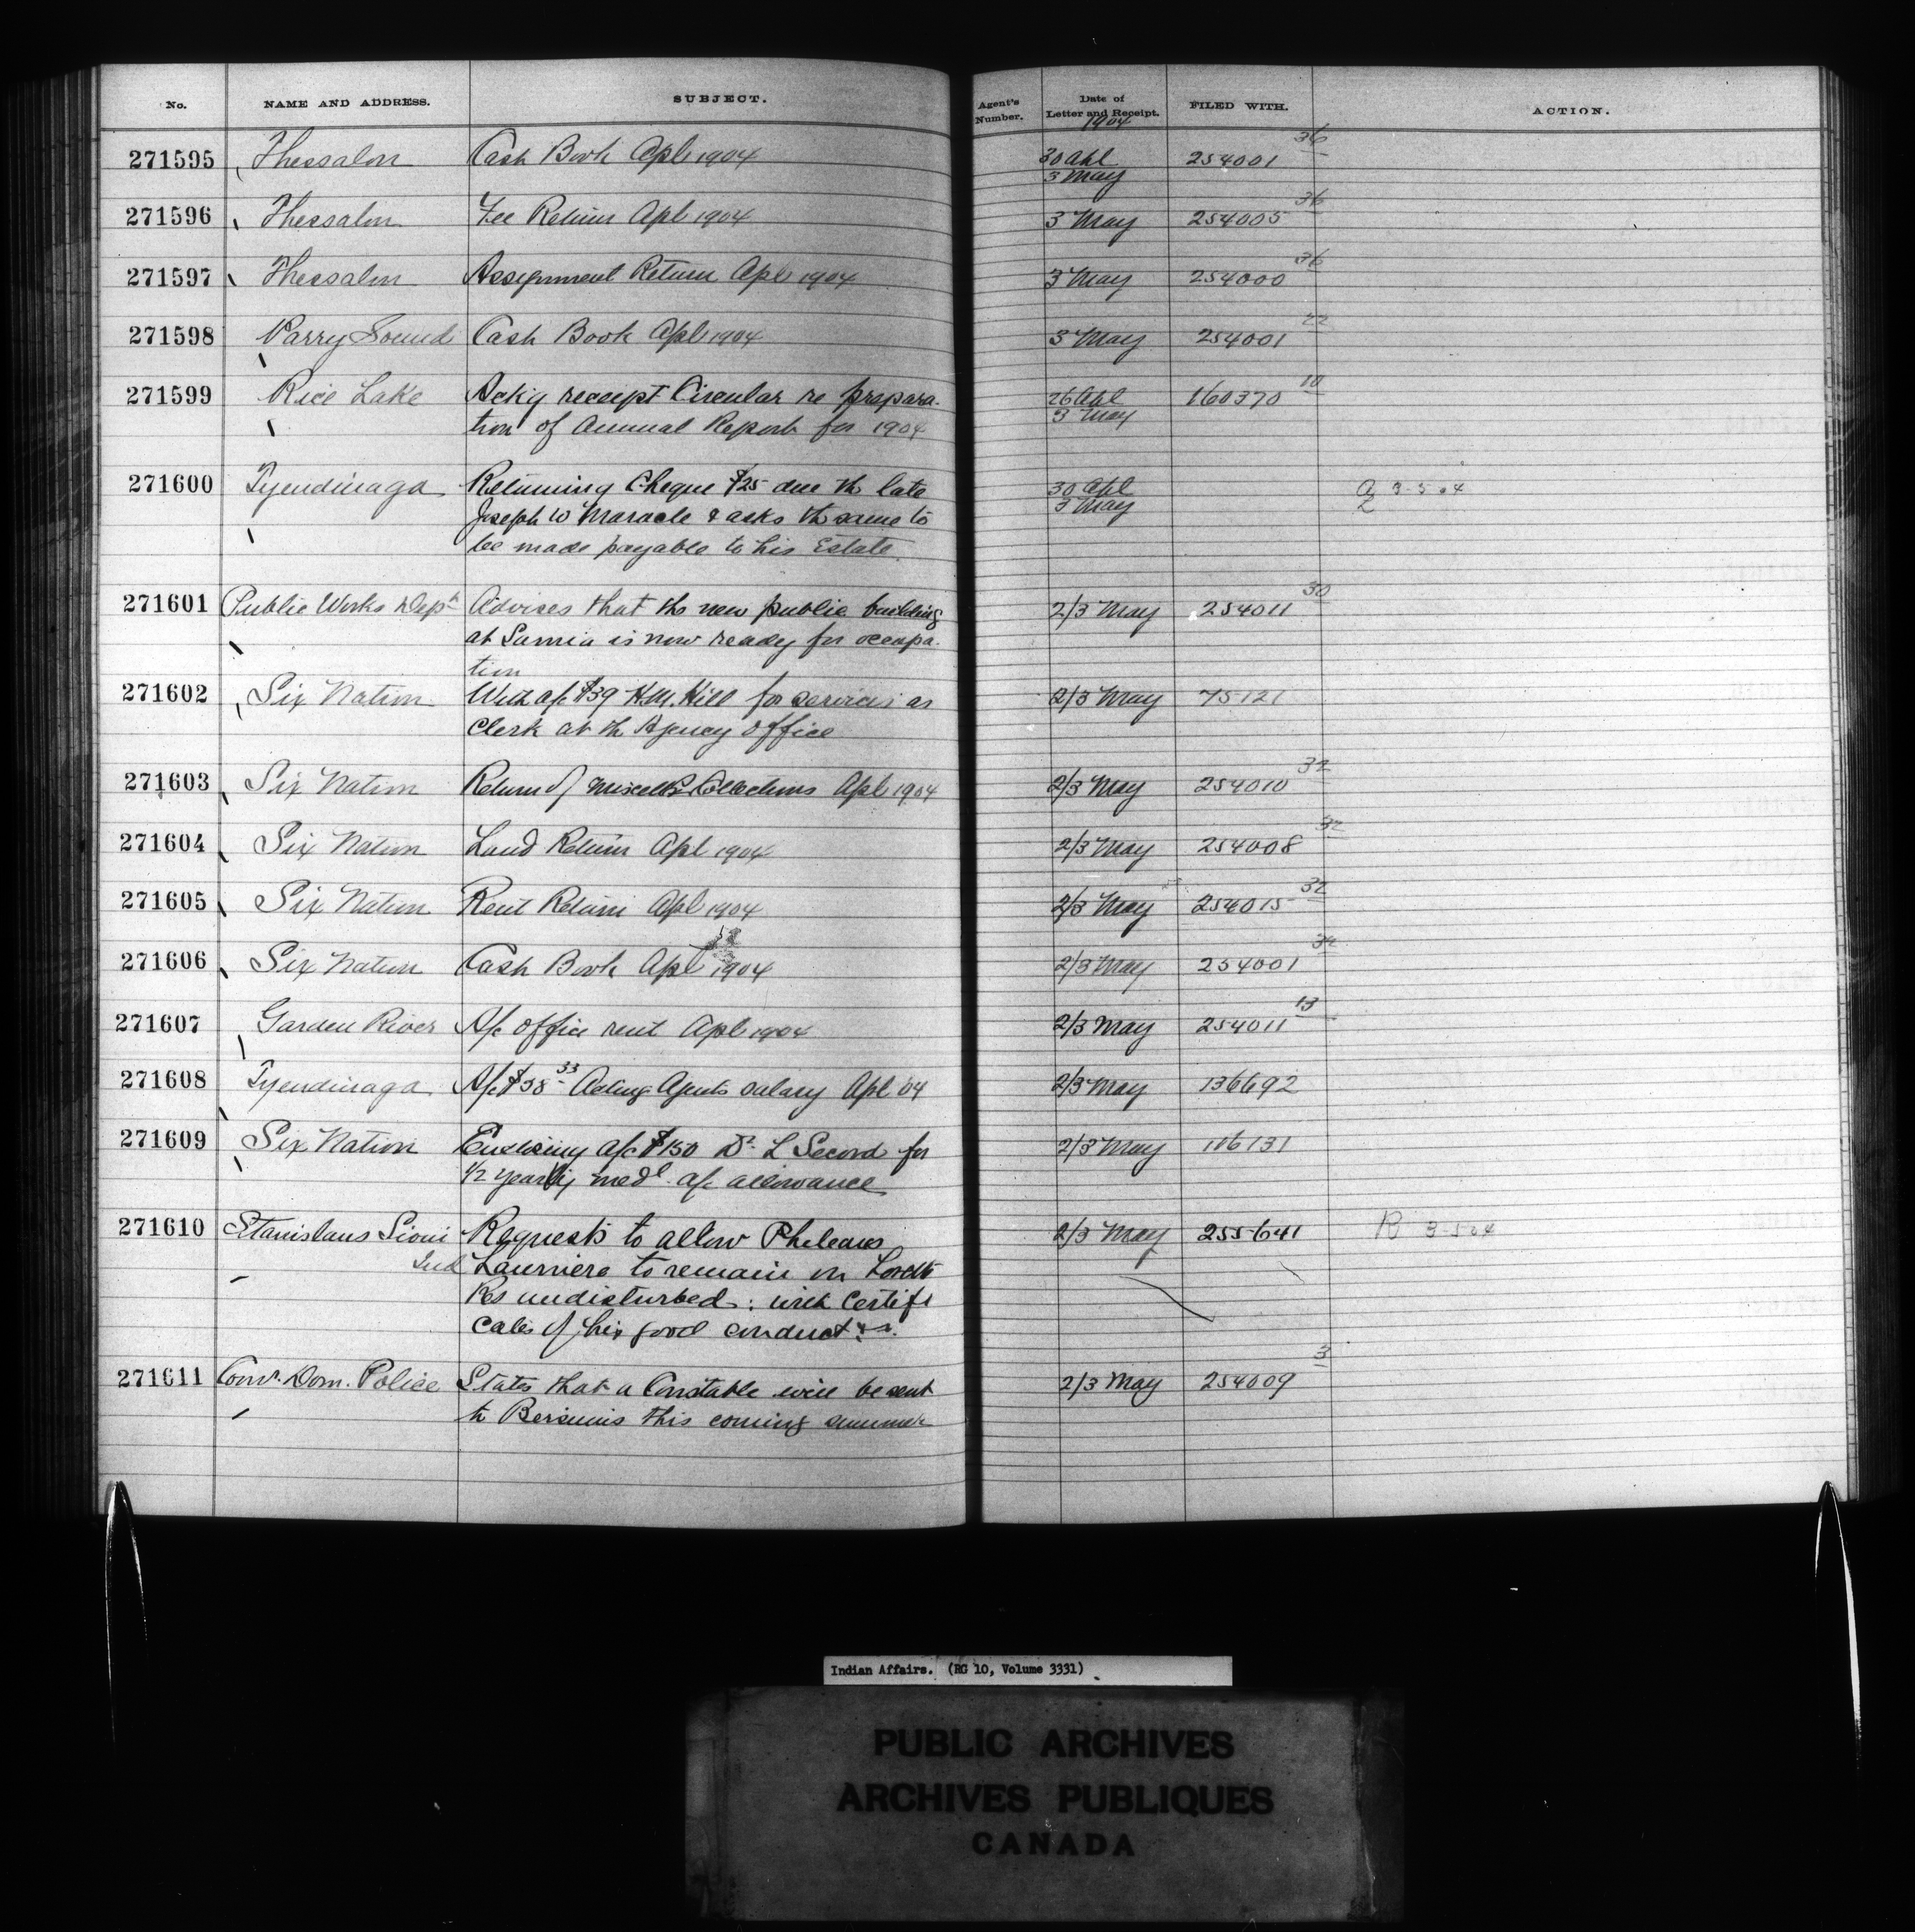 No. NAME AND ADDRESS. SUBJECT. Agent's Number. Date of Letter and Receipt. FILED WITH. ACTION.
1904
271595 Thessalon Cash Book Apl 1904 30 Apl 254001 36
3 May
271596 Thessalon Fee Return Apl 1904 3 May 254005 36
271597 Thessalon Assignment Return Apl 1904 3 May 254000 36
271598 Parry Sound Cash Book Apl 1904 3 May 254001 22
271599 Rice Lake Ackg receipt Circular re prepara- 26 Apl 160370 10
tion of Annual Report for 1904 3 May
271600 Tyendinaga Returning Cheque $25 due th late 30 Apl 3-5-04
Joseph W Maracle & asks th same to 3 May
be made payable to his Estate
271601 Public Works Dept Advises that the new public building 2/3 May 254011 30
at Sarnia is now ready for occupa-
tion
271602 Six Nation With a/c $39 H.M. Hill for services as 2/3 May 75121
Clerk at th Agency office
271603 Six Nation Return of Miscells Collections Apl 1904 2/3 May 254010 32
271604 Six Nation Land Return Apl 1904 2/3 May 254008 32
271605 Six Nation Rent Return Apl 1904 2/3 May 254015 32
271606 Six Nation Cash Book Apl 1904 2/3 May 254001 32
271607 Garden River A/c office rent Apl 1904 2/3 May 254011 13
271608 Tyendinaga A/c $38 33 Acting Agents salary Apl 04 2/3 May 136692
271609 Six Nation Enclosing a/c $150 Dr L Secord for 2/3 May 106131
1/2 yearly medl a/c allowance
271610 Stanislaus Sioui Requests to allow Pheleaus 2/3 May 255641 R 3-5-04
Ind Laurriere to remain on Lorette
Res undisturbed: with Certifi
cates of his good conduct
271611 Comr. Dom. Police States that a Constable will be sent 2/3 May 254009 3
to Bersimis this coming summer
Indian Affairs. (RG 10, Volume 3331)
PUBLIC ARCHIVES
ARCHIVES PUBLIQUES
CANADA